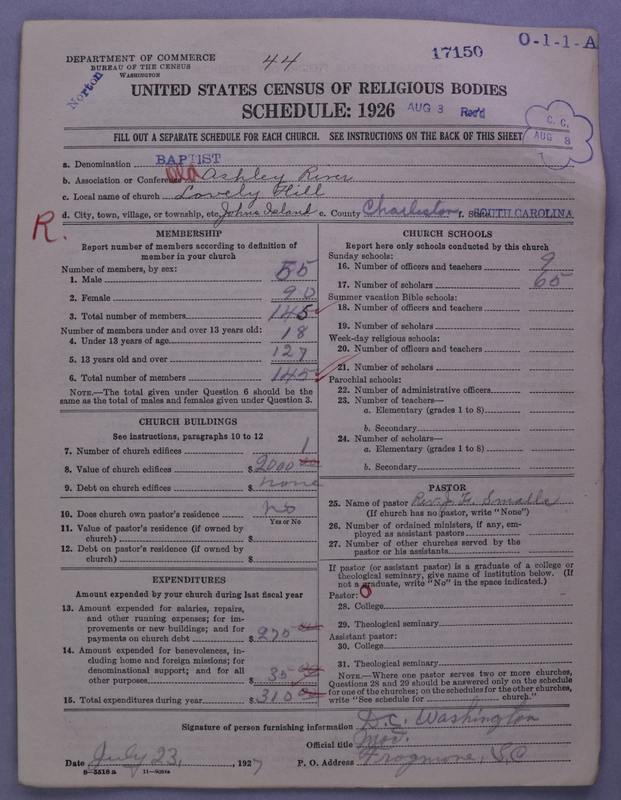 DEPARTMENT OF COMMERCE
BUREAU OF THE CENSUS
WASHINGTON
44
17150
O-1-1-A
Norton
UNITED STATES CENSUS OF RELIGIOUS BODIES
SCHEDULE: 1926
AUG 3 Rec'd
C. C.
AUG 8
FILL OUT A SEPARATE SCHEDULE FOR EACH CHURCH. SEE INSTRUCTIONS ON THE BACK OF THIS SHEET
a. Denomination BAPTIST
b. Association or Conference Old Ashley River
c. Local name of church Lovely Hill
d. City, town, village, or township, etc. Johns Island e. County Charleston f. State SOUTH CAROLINA
R.
MEMBERSHIP
Report number of members according to definition of
member in your church
Number of members, by sex:
1. Male 55
2. Female 90
3. Total number of members 145
Number of members under and over 13 years old:
4. Under 13 years of age 18
5. 13 years old and over 127
6. Total number of members 145
NOTE.—The total given under Question 6 should be the
same as the total of males and females given under Question 3.
CHURCH BUILDINGS
See instructions, paragraphs 10 to 12
7. Number of church edifices 1
8. Value of church edifices $ 2000 00
9. Debt on church edifices $ none
10. Does church own pastor's residence no
Yes or No
11. Value of pastor's residence (if owned by
church) $
12. Debt on pastor's residence (if owned by
church) $
EXPENDITURES
Amount expended by your church during last fiscal year
13. Amount expended for salaries, repairs,
and other running expenses; for im-
provements or new buildings; and for
payments on church debt $ 275 00
14. Amount expended for benevolences, in-
cluding home and foreign missions; for
denominational support; and for all
other purposes $ 35 00
15. Total expenditures during year $ 310 00
CHURCH SCHOOLS
Report here only schools conducted by this church
Sunday schools:
16. Number of officers and teachers 9
17. Number of scholars 65
Summer vacation Bible schools:
18. Number of officers and teachers
19. Number of scholars
Week-day religious schools:
20. Number of officers and teachers
21. Number of scholars
Parochial schools:
22. Number of administrative officers
23. Number of teachers—
a. Elementary (grades 1 to 8)
b. Secondary
24. Number of scholars—
a. Elementary (grades 1 to 8)
b. Secondary
PASTOR
25. Name of pastor Rev. J. H. Smalls
(If church has no pastor, write "None")
26. Number of ordained ministers, if any, em-
ployed as assistant pastors
27. Number of other churches served by the
pastor or his assistants
If pastor (or assistant pastor) is a graduate of a college or
theological seminary, give name of institution below. (If
not a graduate, write "No" in the space indicated.)
Pastor: O
28. College
29. Theological seminary
Assistant pastor:
30. College
31. Theological seminary
NOTE.—Where one pastor serves two or more churches,
Questions 28 and 29 should be answered only on the schedule
for one of the churches; on the schedules for the other churches,
write "See schedule for church."
Signature of person furnishing information D. C. Washington
Official title Mod.
Date July 23, 1927 P. O. Address Frogmore, SC
8—5518a 11—9051a